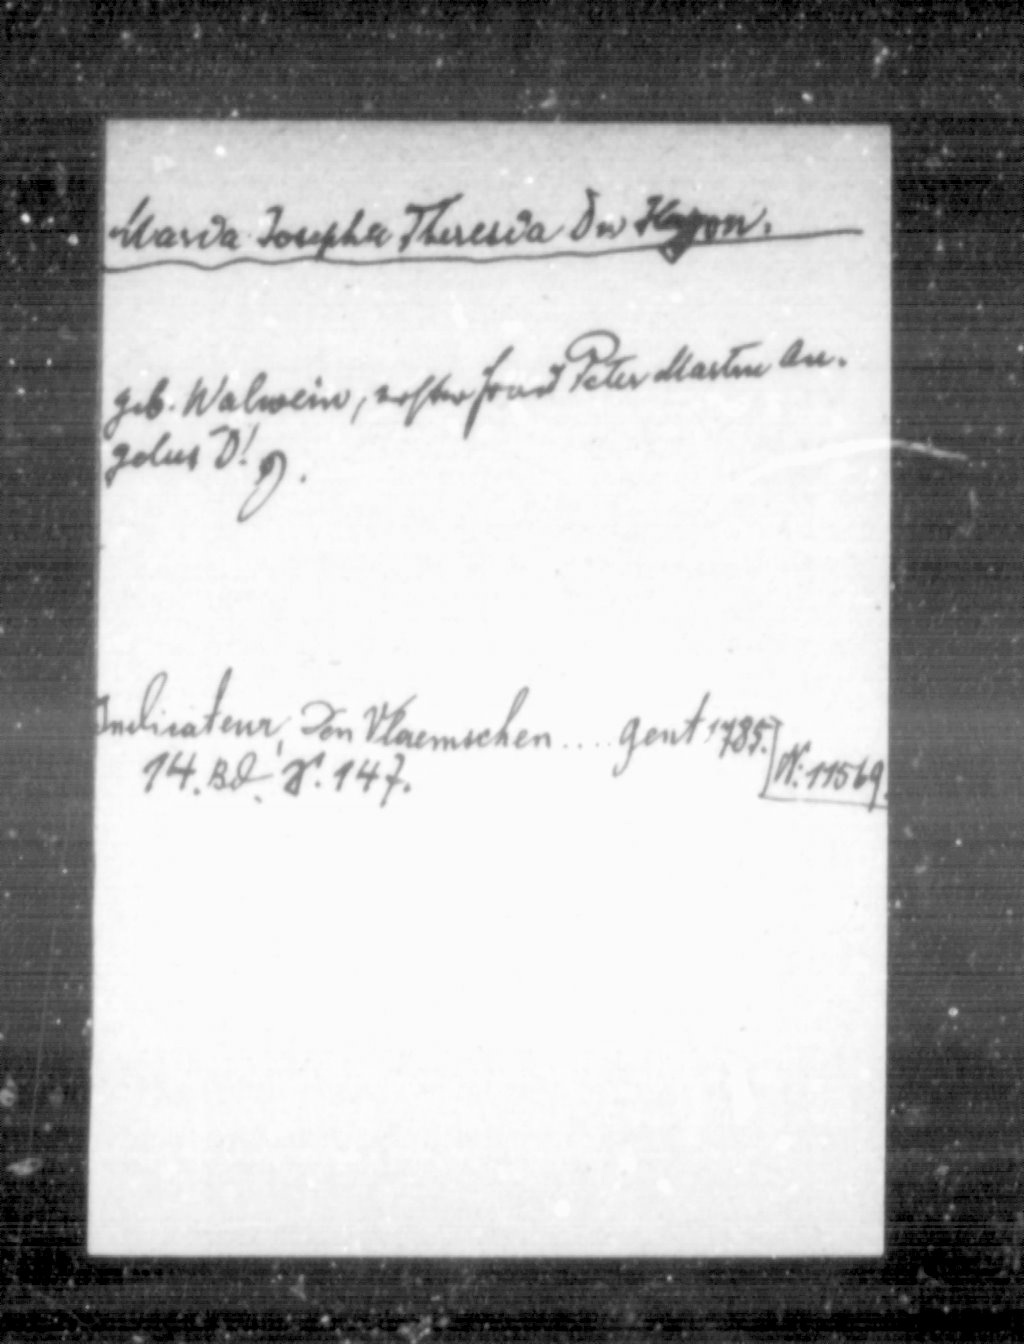 Maria Josepha Theresia
geb. Walwein, erster Frau d Peter Martin An-
gelus D!
Indicateur, Den Vlaemschen .... gent 1785.
14. Bd. S. 147. N: 11569.